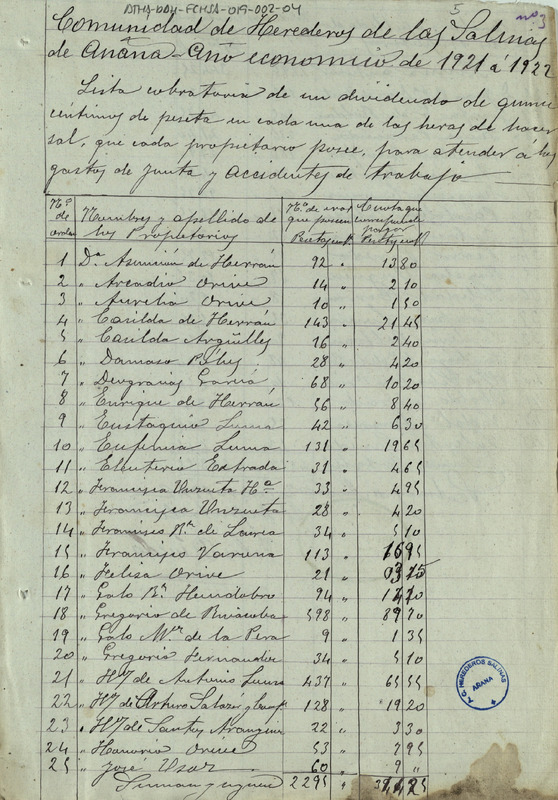 DTHA-DAH-FCHSA-019-002-04
5
nº 3
Comunidad de Herederos de las Salinas
de Añana - Año economico de 1921 a 1922
Lista cobratoria de un dividendo de quince
céntimos de peseta en cada una de las heras de hacer
sal, que cada propietario posee, para atender á los
gastos de Junta y accidentes de trabajo
Nº de orden
Nombres y apellido de los Propietarios
Nº de eras que poseen
Cuota que corresponde pagar
1 Dª Asunción de Herrán 92 " 13 80
2 " Arcadio Orive 14 " 2 10
3 " Aurelia Orive 10 " 1 50
4 " Casilda de Herrán 143 " 21 45
5 " Casilda Argüelles 16 " 2 40
6 " Damaso 28 " 4 20
7 " Deogracias García 68 " 10 20
8 " Enrique de Herrán 56 " 8 40
9 " Eustaquio Luna 42 " 6 30
10 " Eufemia Luna 131 " 19 65
11 " Eleuterio Extrada 31 " 4 65
12 " Francisca Unzueta Hª 33 " 4 95
13 " Francisca Unzueta 28 " 4 20
14 " Francisco de 34 " 5 10
15 " Francisco Varona 113 " 16 95
16 " Felisa Orive 21 " 3 15
17 " Galo 94 "
18 " Gregorio de 598 " 89 70
19 " Galo Mª de la Pera 9 " 1 35
20 " Gregorio Fernandez 34 " 5 10
21 " Hº de Antonio Luna 437 " 65 55
22 " Hº de Arturo Salazar y 128 " 19 20
23 " Hº de Santos 22 " 3 30
24 " Honorio Orive 53 " 7 95
25 " José 60 " 9 "
Suman y siguen 2295 "
A.C. HEREDEROS SALINAS
AÑANA